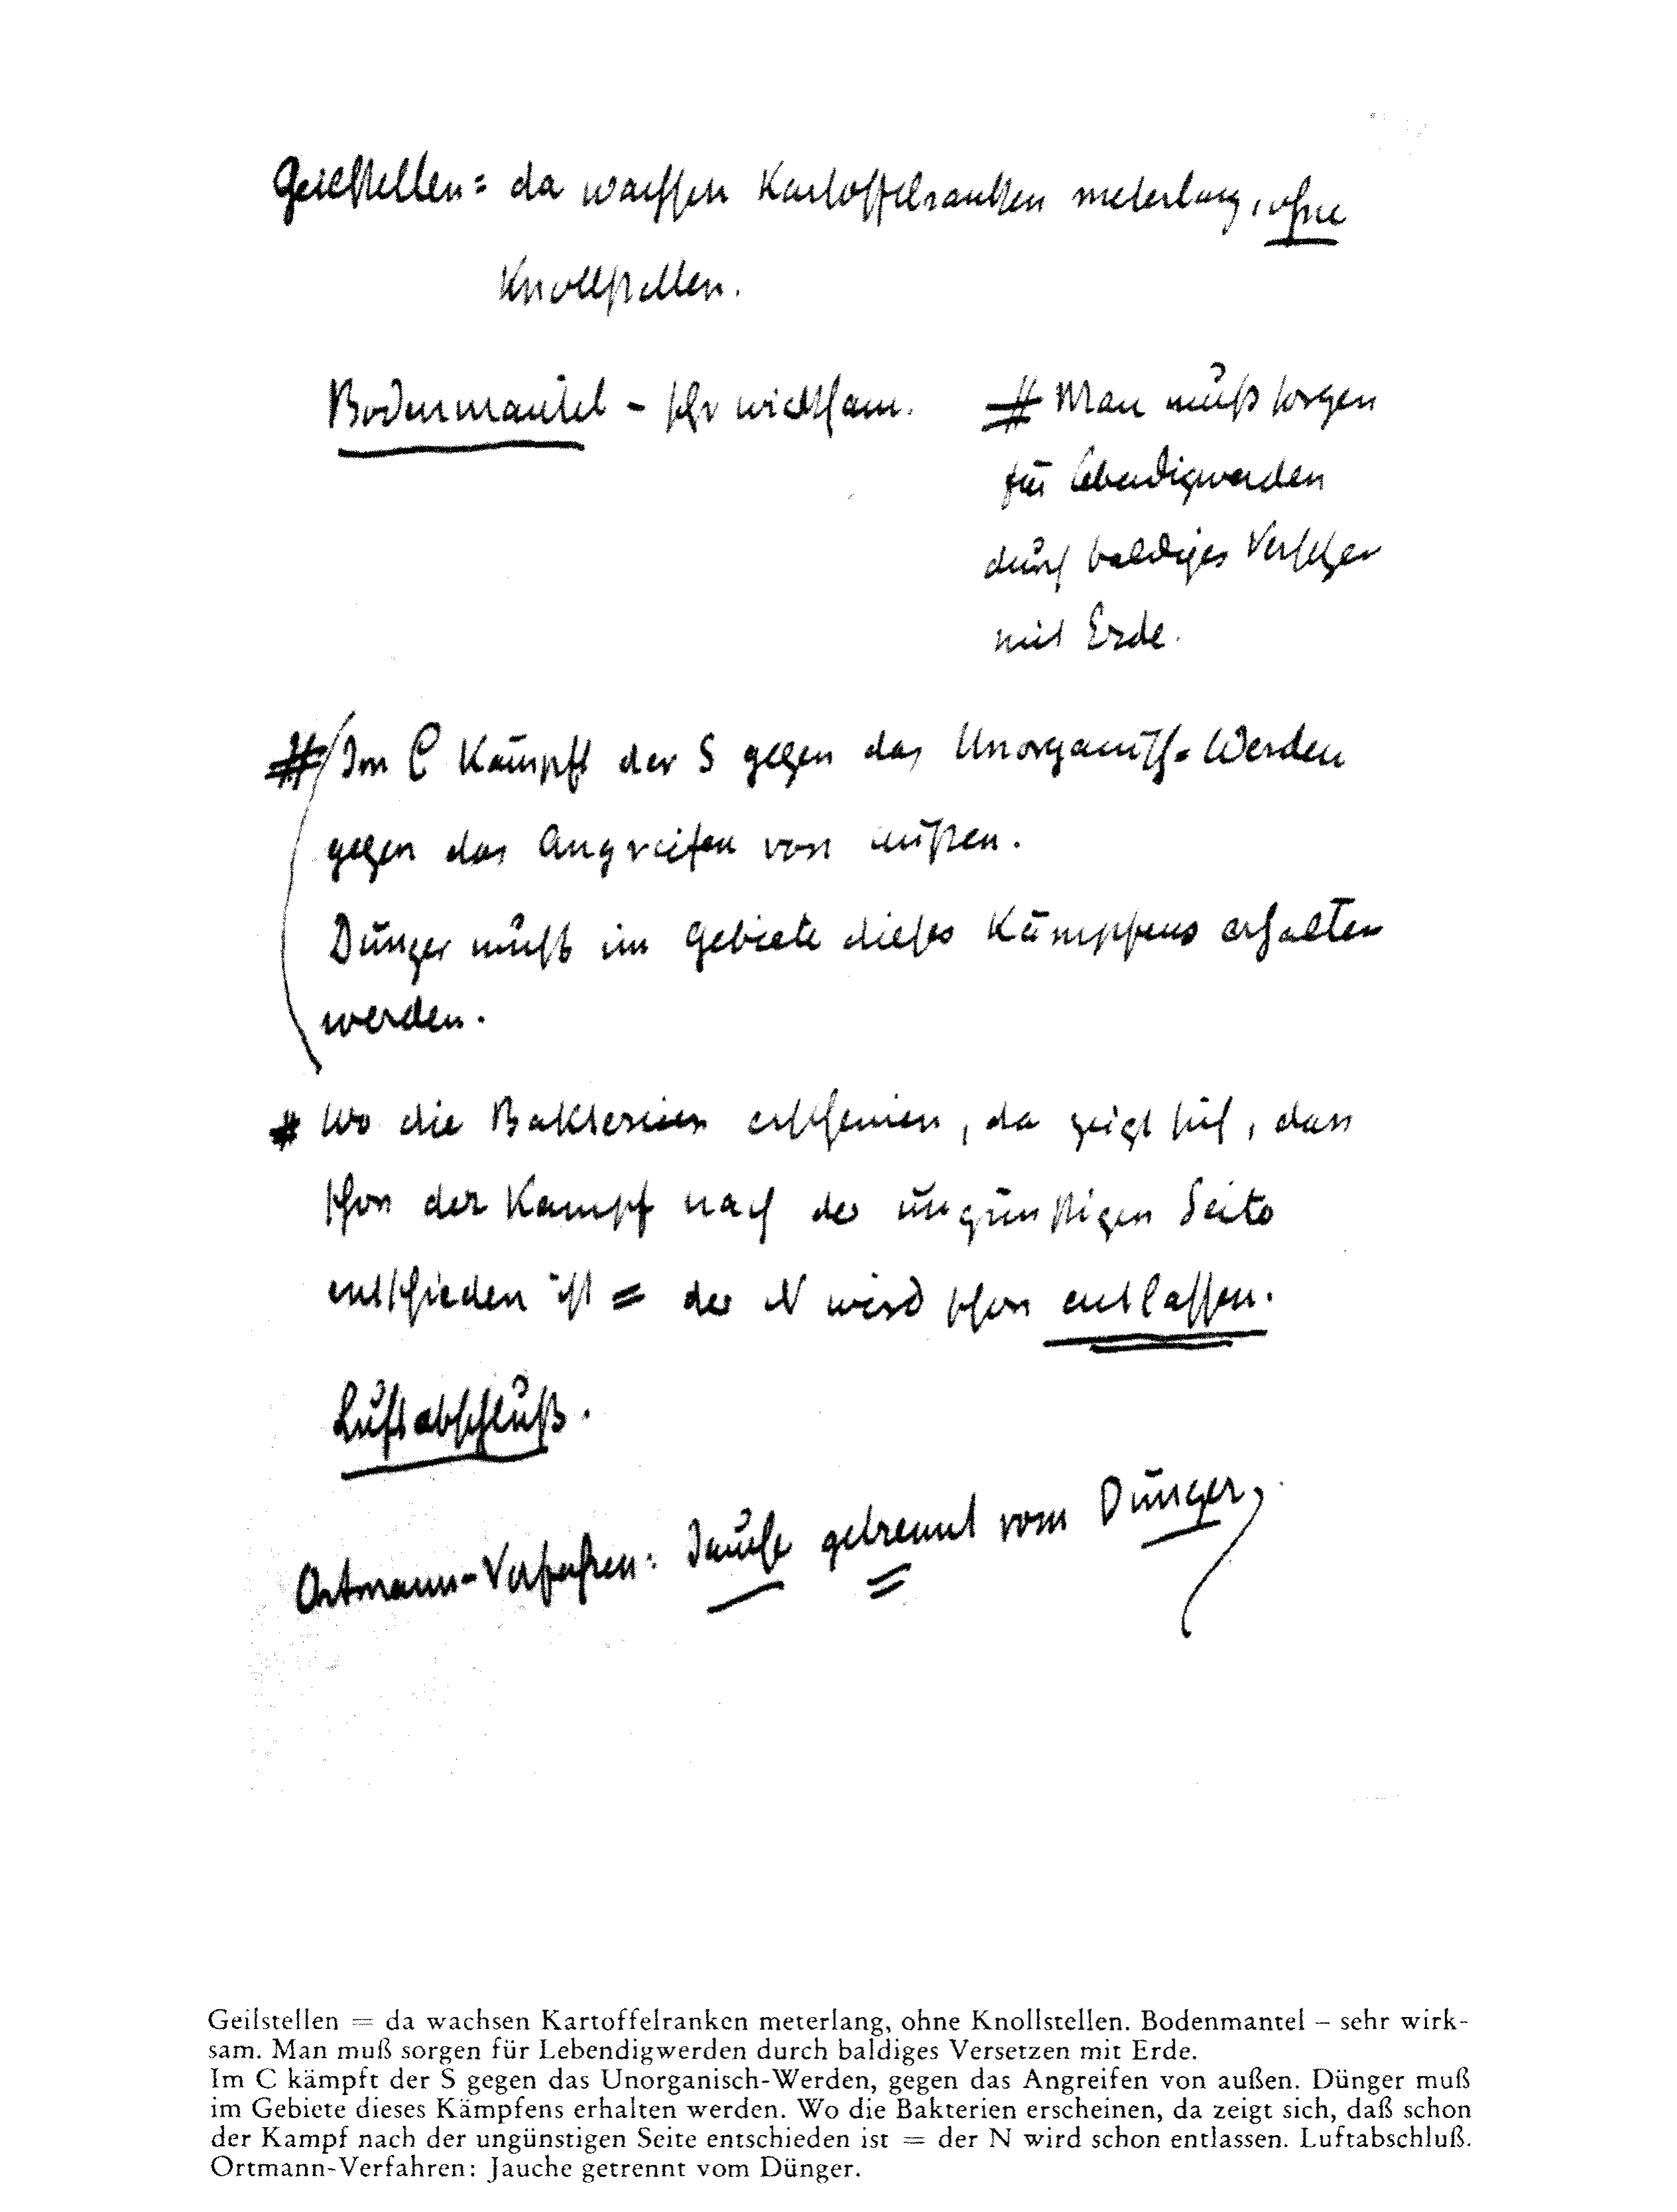 Geilstellen = da wachsen Kartoffelranken meterlang, ohne
Knollstellen.
Bodenmantel - sehr wirksam.
# Man muß sorgen
für Lebendigwerden
durch baldiges Versetzen
mit Erde.
# Im C kämpft der S gegen das Unorganisch-Werden
gegen das Angreifen von außen.
Dünger muß im Gebiete dieses Kämpfens erhalten
werden.
# Wo die Bakterien erscheinen, da zeigt sich, dass
schon der Kampf nach der ungünstigen Seite
entschieden ist = der N wird schon entlassen.
Luftabschluß.
Ortmann-Verfahren: Jauche getrennt vom Dünger,
Geilstellen = da wachsen Kartoffelranken meterlang, ohne Knollstellen. Bodenmantel – sehr wirk-
sam. Man muß sorgen für Lebendigwerden durch baldiges Versetzen mit Erde.
Im C kämpft der S gegen das Unorganisch-Werden, gegen das Angreifen von außen. Dünger muß
im Gebiete dieses Kämpfens erhalten werden. Wo die Bakterien erscheinen, da zeigt sich, daß schon
der Kampf nach der ungünstigen Seite entschieden ist = der N wird schon entlassen. Luftabschluß.
Ortmann-Verfahren: Jauche getrennt vom Dünger.